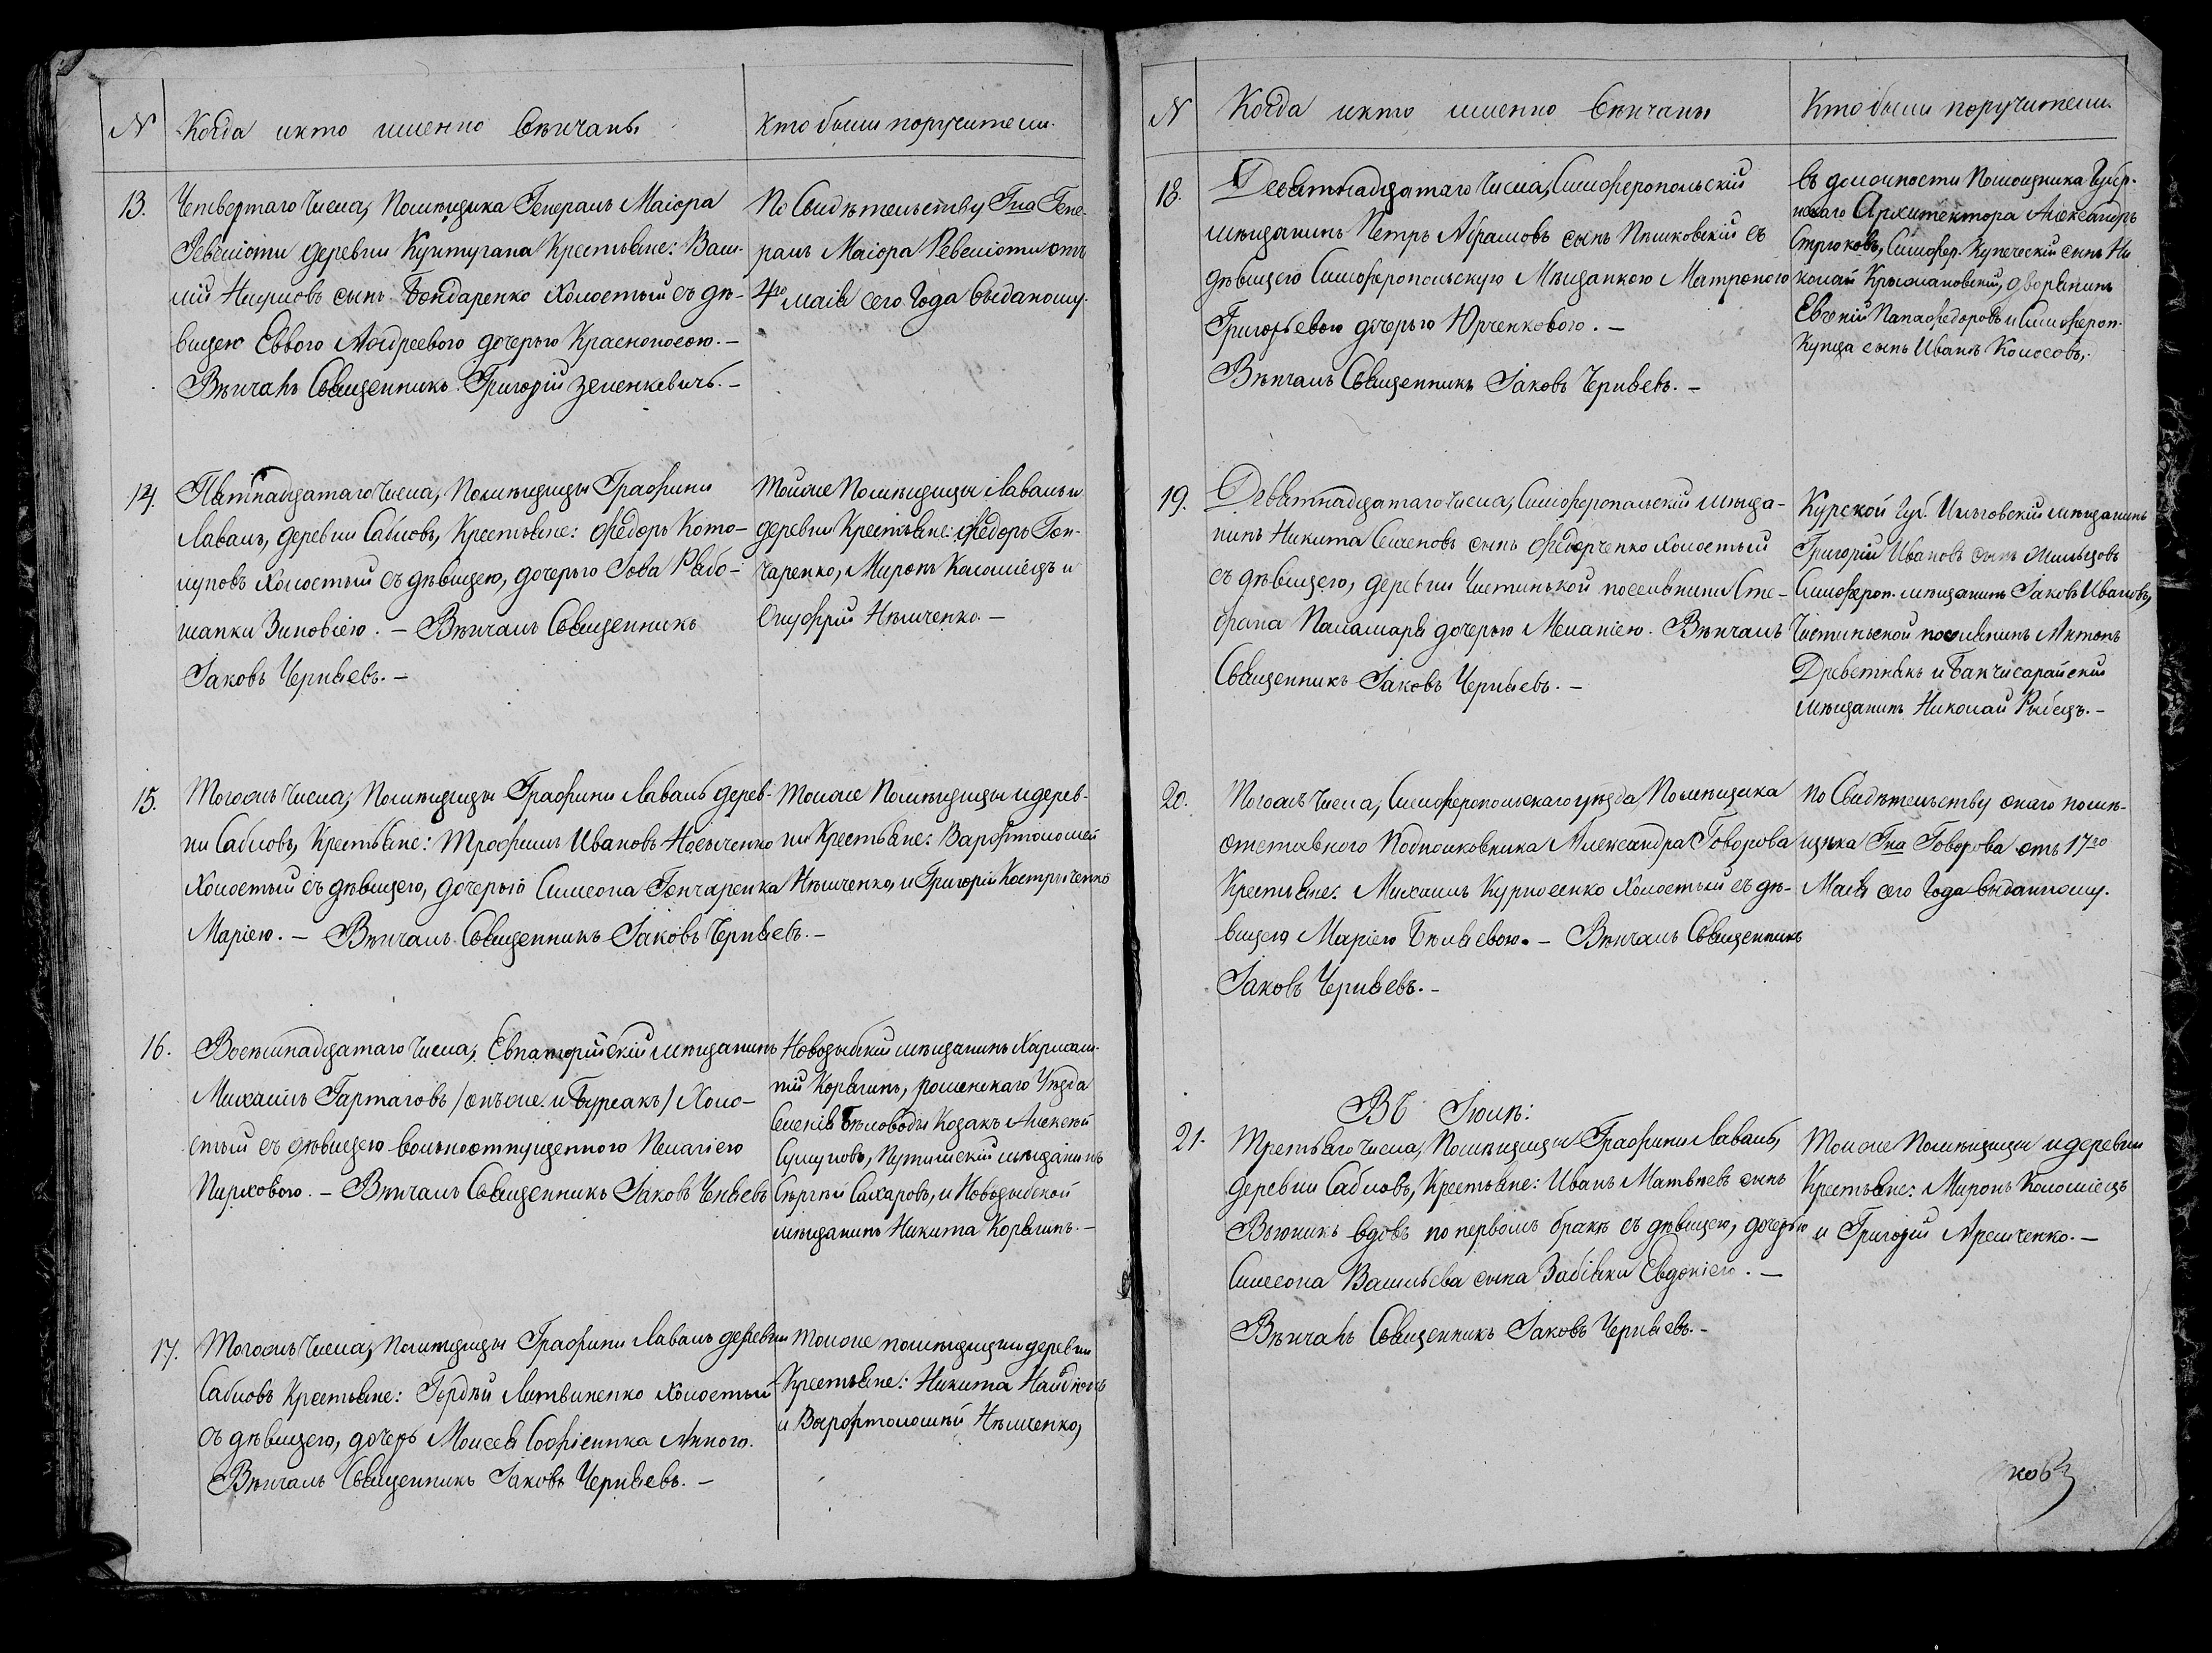 N
Когда икто именно Вѣнчаны
Кто были поручители.
13.
Четвертаго Числа, Помѣщика Генералъ Маіора
Ревеліоти деревни Кунтугана Крестьяне: Васи-
лій Наумовъ сынъ Бондаренко Холостый съ дѣ-
вицею Еввою Андреевою дочерью Красноносою. –
Вѣнчалъ Священникъ Григорій Зеленкевичъ. –
По Свидѣтельству Гна Гене-
ралъ Маіора Ревеліоти отъ
4го маія сего Года выданому.
14.
Пятнадцатаго Числа, Помѣщицы Графини
Лаваль, деревни Сабловъ, Крестьяне: Федоръ Кото-
луповъ Холостый съ дѣвицею, дочерью Іова Рябо-
шапки Зиновіею. – Вѣнчалъ Священникъ
Іаковъ Черняевъ. –
Тойже Помѣщицы Лаваль и
деревни Крестьяне: Федоръ Гон-
чаренко, Миронъ Коломіецъ и
Онуфрій Нѣмченко. –
15.
Тогожъ Числа, Помѣщицы Графини Лаваль дерев-
ни Сабловъ, Крестьяне: Трофимъ Ивановъ
Холостый съ дѣвицею, дочерью Симеона Гончаренка
Маріею. – Вѣнчалъ Священникъ Іаковъ Черняевъ. –
Тойже Помѣщицы идерев-
ни Крестьяне: Варфтоломей
Нѣмченко, и Григорій Костриченко
16.
Восемнадцатаго Числа, Евпаторійскій мѣщанинъ
Михаилъ Гартаговъ /онъже и Бурлакъ/ Холо-
стый съ дѣвицею вольноотпущенною Пелагіею
Пирховою. – Вѣнчалъ Священникъ Іаковъ Ченяевъ
Новозыбкій мѣщанинъ Харлам-
пій Корягинъ, роменскаго Уѣзда
Селенія Бѣловоды Козакъ Алексѣй
Сушуновъ, Путивскій мѣщанинъ
Сѣргѣй Сахаровъ, и Новозыбской
мѣщанинъ Никита Корягинъ. –
17.
Тогожъ Числа, Помѣщицы Графини Лаваль деревни
Сабловъ Крестьяне: Гордѣй Литвиненко Холостый
съ дѣвицею, дочерь Моисея Софіенка Анною.
Вѣнчалъ Священникъ Іаковъ Черняевъ. –
Тойже помѣщицыи деревни
Крестьяне: Никита Найдюкъ
и Варфтоломѣй Нѣмченко,
N
Когда икто именно Вѣнчаны
Кто были поручители.
18.
Девятнадцатаго Числа, Симферопольскій
мѣщанинъ Петръ Абрамовъ сынъ Пѣшковскій съ
дѣвицею Симферопольскую Мѣщанкою Матроною
Григорьевою дочерью Юрченковою. –
Вѣнчалъ Священникъ Іаковъ Черняевъ. –
въ должности Помощника Губер-
нскаго Архитектора Александръ
Стрюковъ, Симфер. Купеческій сынъ Ни
колай Крыжановскій, дворянинъ
Евгеній Папафедоровъ и Симфероп.
Купца сынъ Иванъ Колосовъ.
19.
Девятнадцатаго Числа, Симферопольскій мѣща-
нинъ Никита Семеновъ сынъ Федорченко Холостый
съ дѣвицею, деревни Чистинькой поселянина Сте-
фана Паламаря дочерью Меланіею. Вѣнчалъ
Священникъ Іаковъ Черняевъ. –
Курской Губ. Ильговскій мѣщанинъ
Григорій Ивановъ сынъ Мильцовъ
Симфероп. мѣщанинъ Іаковъ Ивановъ,
Чистинской поселянинъ Антонъ
Древетнякъ и Бакчисарайскій
мѣщанинъ Николай Рыбецъ. –
20.
Тогожъ Числа, Симферопольскаго уѣзда, Помѣщика
отставного Подполковника Александра Говорова
Крестьяне: Михаилъ Курносенко Холостый съ дѣ-
вицею Маріею Бѣляевою. – Вѣнчалъ Священникъ
Іаковъ Черняевъ. –
По Свидѣтельству онаго помѣ-
щика Гна Говорова отъ 17го
Маія сего Года выданному.
ВЪ Іюлѣ:
21.
Третьяго Числа, Помѣщицы Графини Лаваль,
деревни Сабловъ, Крестьяне: Иванъ Матвѣевъ сынъ
Вьюникъ вдовъ по первомъ бракѣ съ дѣвицею, дочерью
Симеона Васильева сына Забіяки Евдокіею. –
Вѣнчалъ Священникъ Іаковъ Черняевъ. –
Тойже Помѣщицы идеревни
Крестьяне: Миронъ Коломіецъ
и Григорій Яремченко. –
ковъ